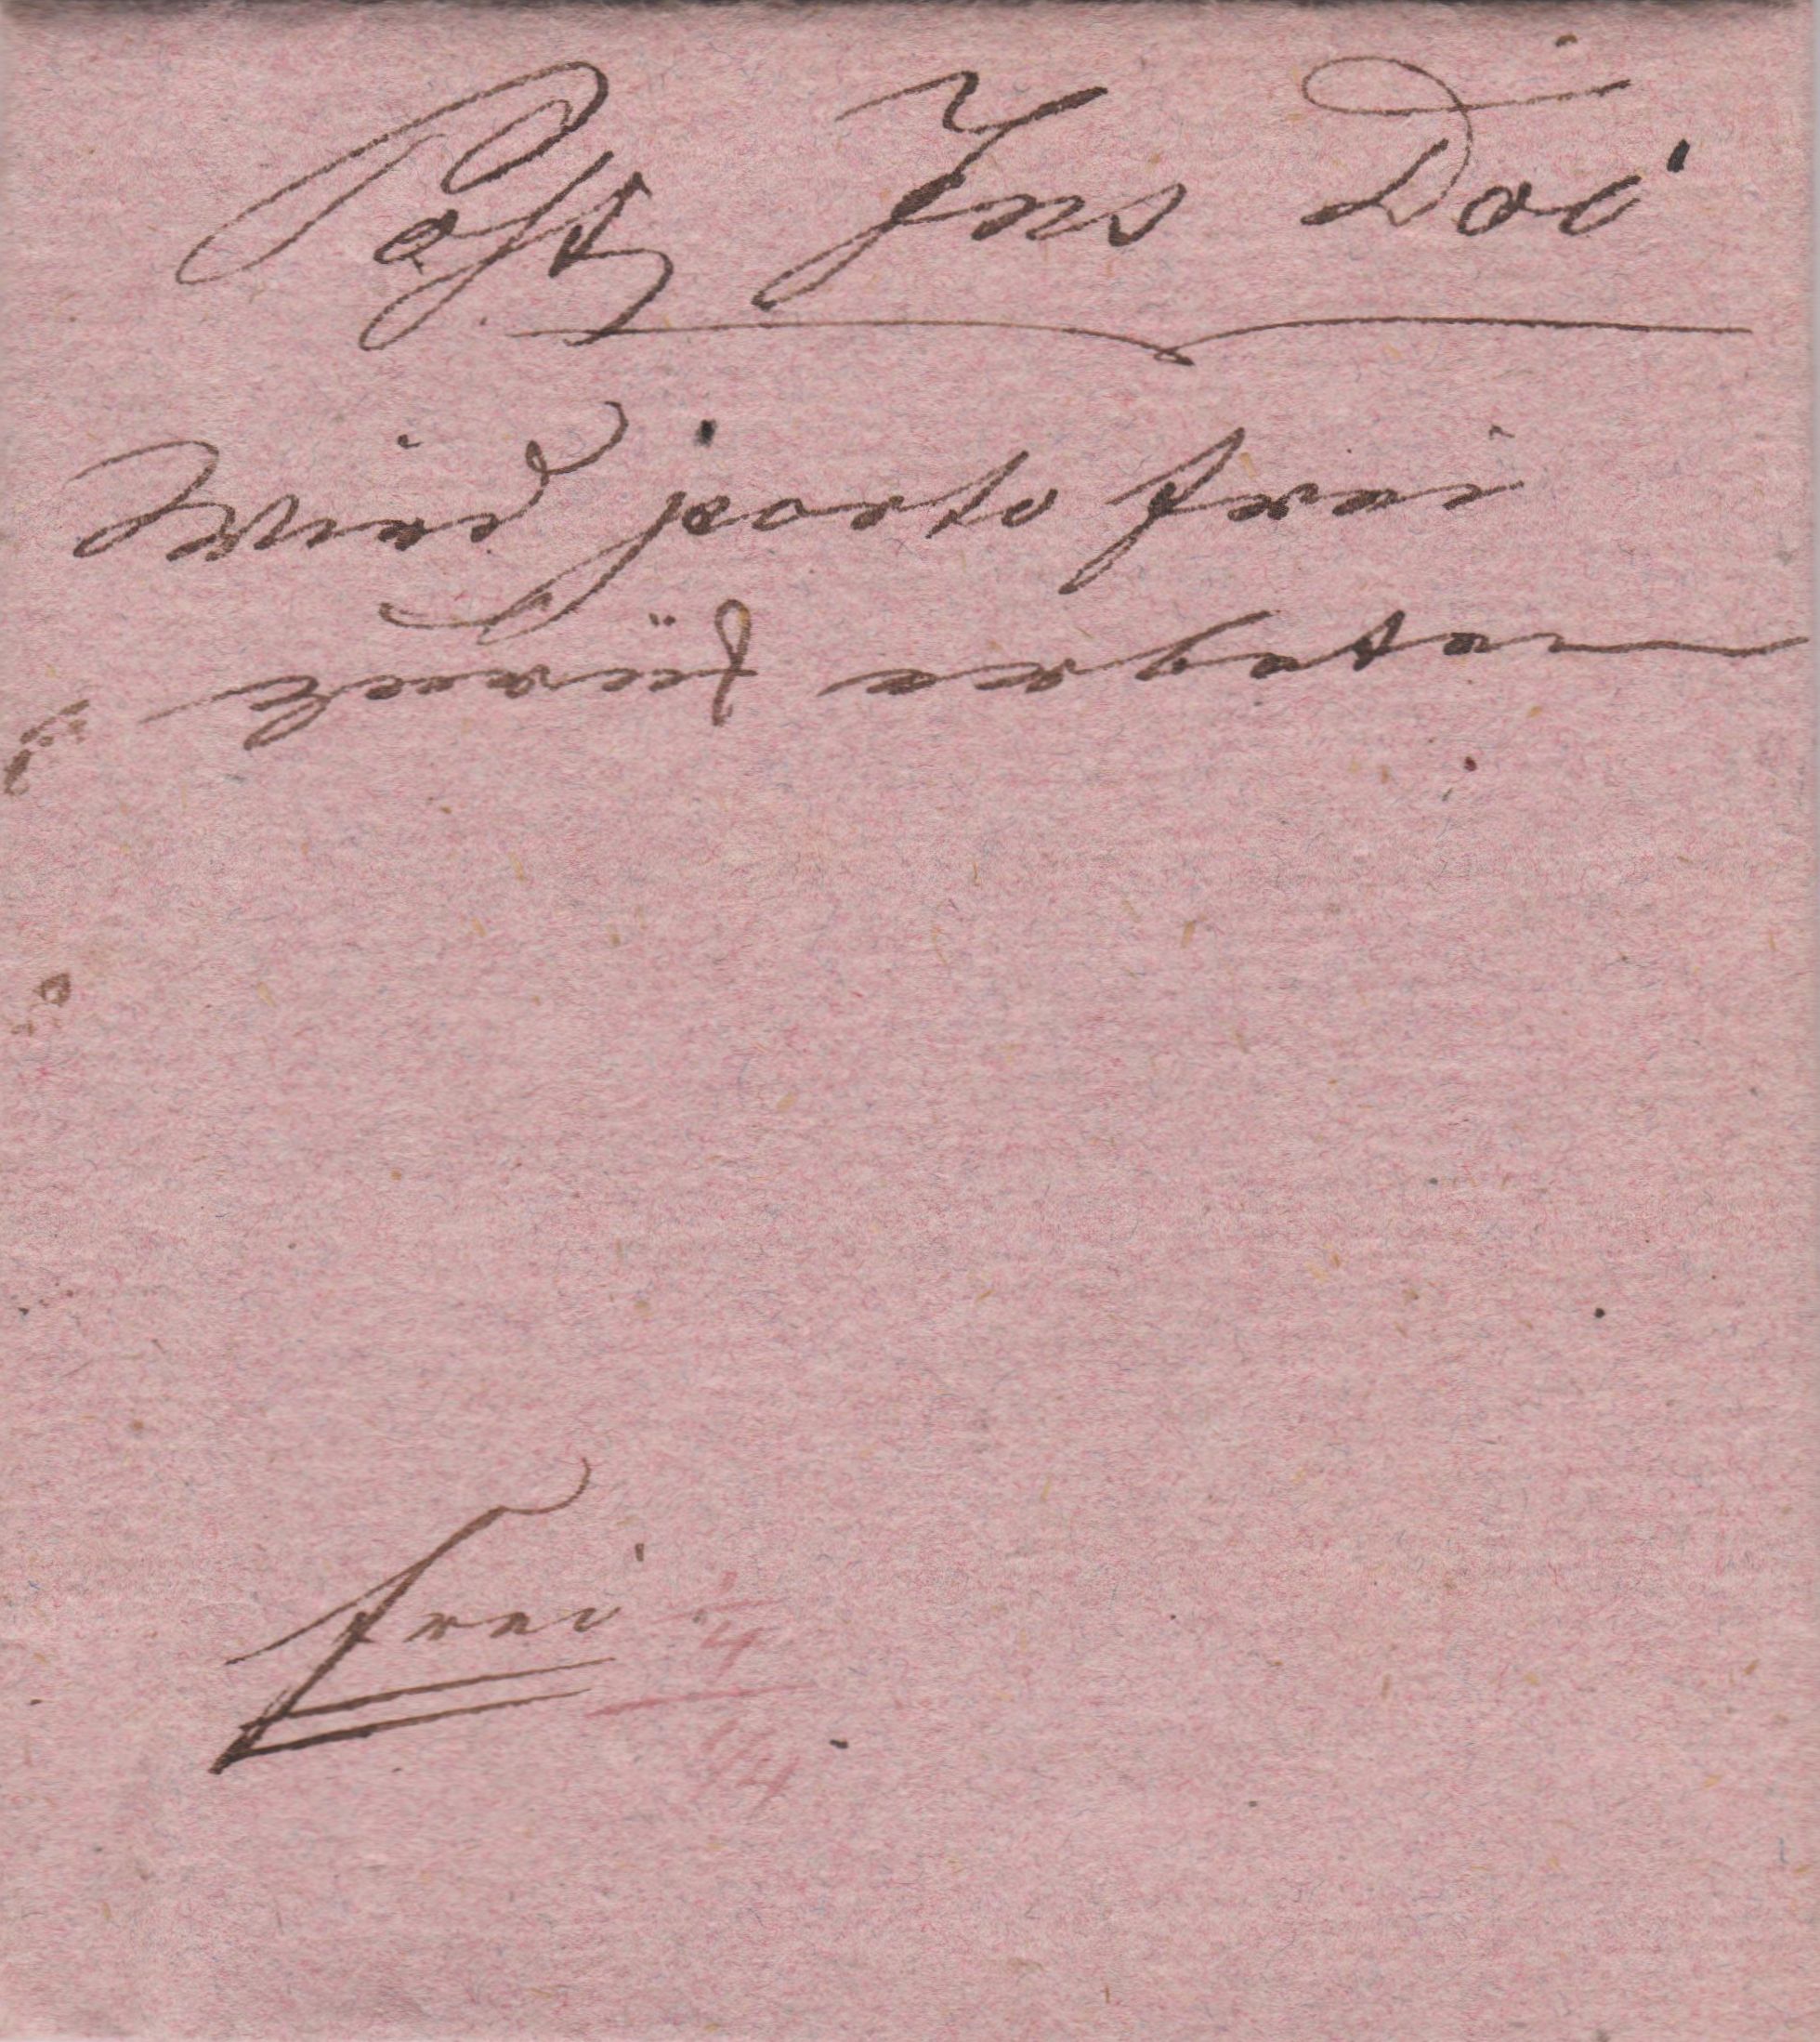 Post Ins Doc
Wird porto frei
zurük erbeten
frei